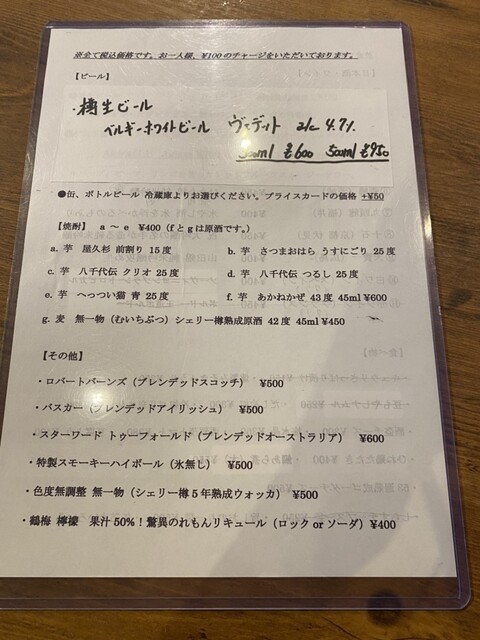 ※全て税込価格です。お一人様、¥100のチャージをいただいております。
【ビール】
・樽生ビール
ベルギーホワイトビール ヴェデット alc 4.7%
300ml ¥600 500ml ¥950
●缶、ボトルビール 冷蔵庫よりお選びください。プライスカードの価格 +¥50
【焼酎】 a ～ e ¥400（f と g は原酒です。）
a. 芋 屋久杉 前割り 15 度 b. 芋 さつまおはら うすにごり 25 度
c. 芋 八千代伝 クリオ 25 度 d. 芋 八千代伝 つるし 25 度
e. 芋 へっつい猫 青 25 度 f. 芋 あかねかぜ 43 度 45ml ¥600
g. 麦 無一物（むいちぶつ）シェリー樽熟成原酒 42 度 45ml ¥450
【その他】
・ロバートバーンズ（ブレンデッドスコッチ） ¥500
・バスカー（ブレンデッドアイリッシュ） ¥500
・スターワード トゥーフォールド（ブレンデッドオーストラリア） ¥600
・特製スモーキーハイボール（氷無し） ¥500
・色度無調整 無一物（シェリー樽５年熟成ウォッカ） ¥500
・鶴梅 檸檬 果汁 50%！驚異のれもんリキュール（ロック or ソーダ）¥400